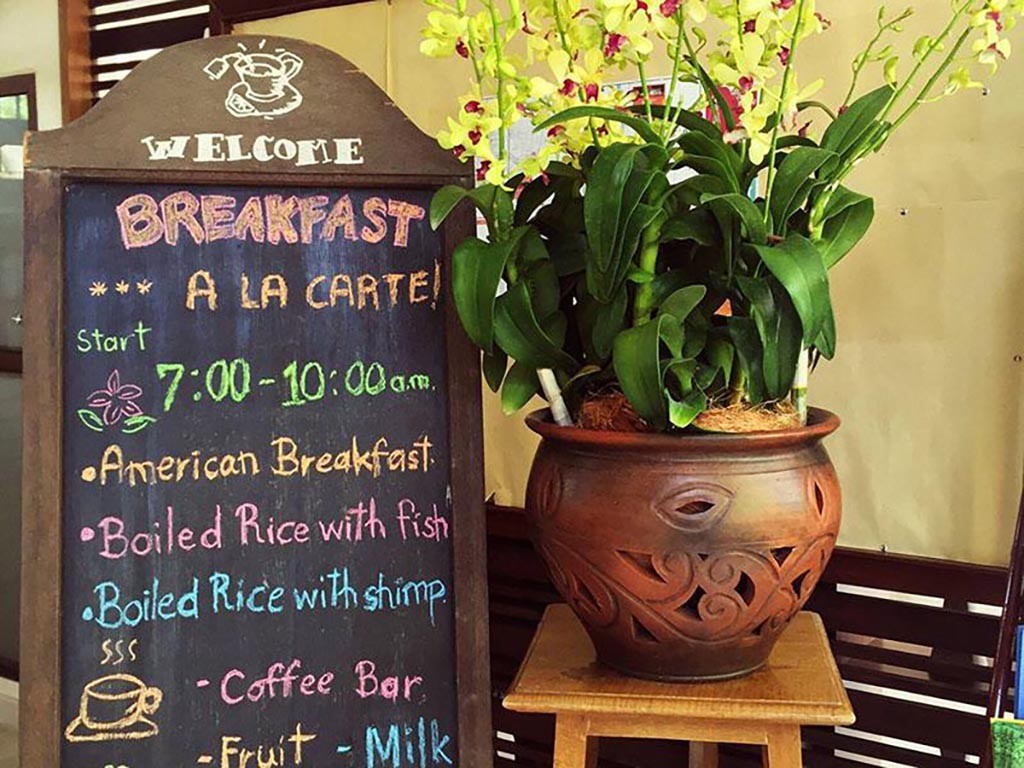 WELCOME
BREAKFAST
*** A LA CARTE!
Start
7:00-10:00 a.m.
•American Breakfast.
•Boiled Rice with fish
•Boiled Rice with shimp.
- Coffee Bar
- Fruit - Milk